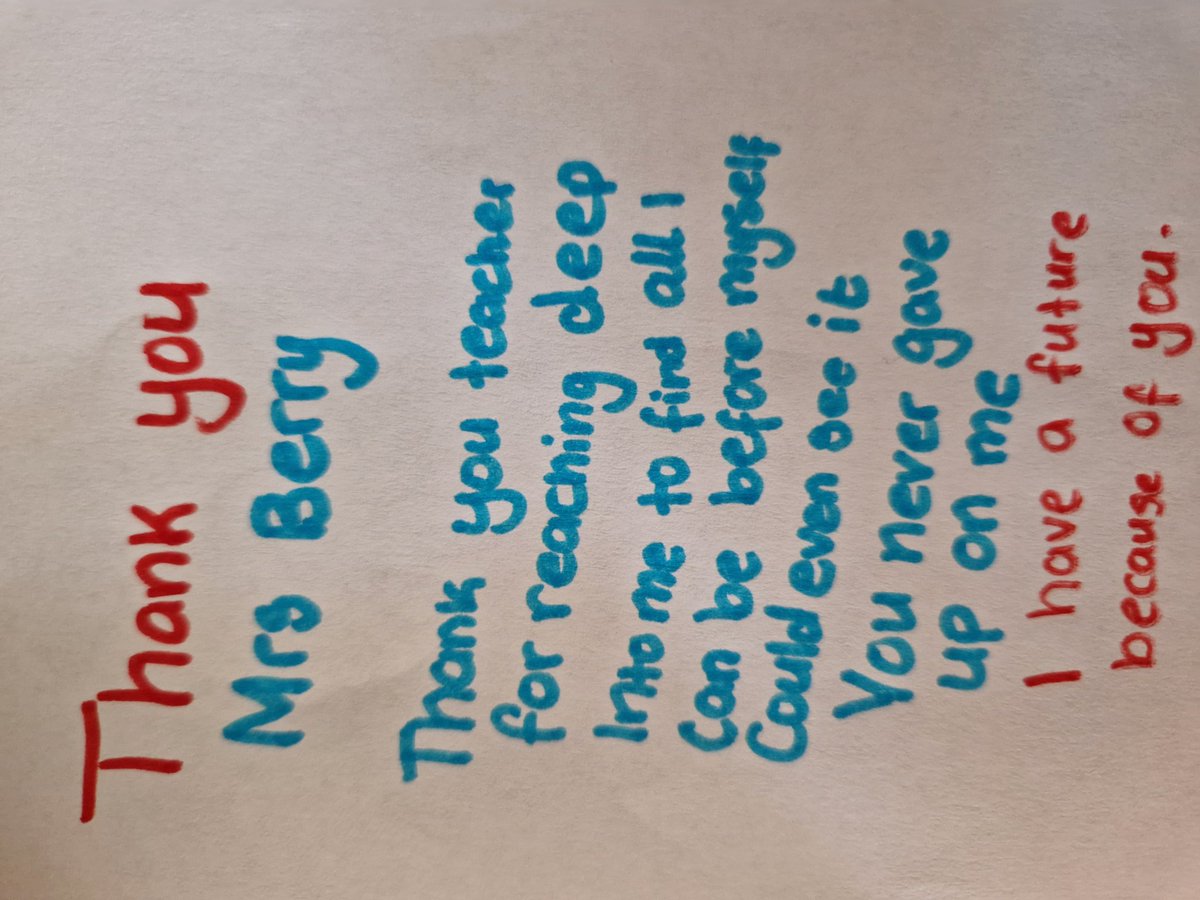 Thank you
Mrs Berry
Thank you teacher
for reaching deep
Into me to find all I
Can be before myself
Could even see it
You never gave
up on me
I have a future
because of you.